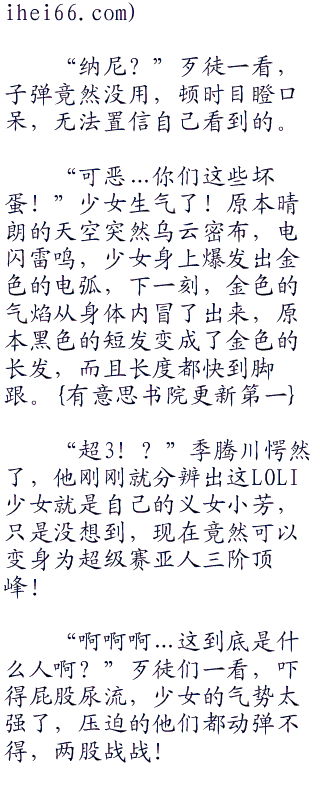 ihei66.com)
“纳尼？”歹徒一看，
子弹竟然没用，顿时目瞪口
呆，无法置信自己看到的。
“可恶…你们这些坏
蛋！”少女生气了！原本晴
朗的天空突然乌云密布，电
闪雷鸣，少女身上爆发出金
色的电弧，下一刻，金色的
气焰从身体内冒了出来，原
本黑色的短发变成了金色的
长发，而且长度都快到脚
跟。{有意思书院更新第一}
“超3！？”季腾川愕然
了，他刚刚就分辨出这LOLI
少女就是自己的义女小芳，
只是没想到，现在竟然可以
变身为超级赛亚人三阶顶
峰！
“啊啊啊…这到底是什
么人啊？”歹徒们一看，吓
得屁股尿流，少女的气势太
强了，压迫的他们都动弹不
得，两股战战！